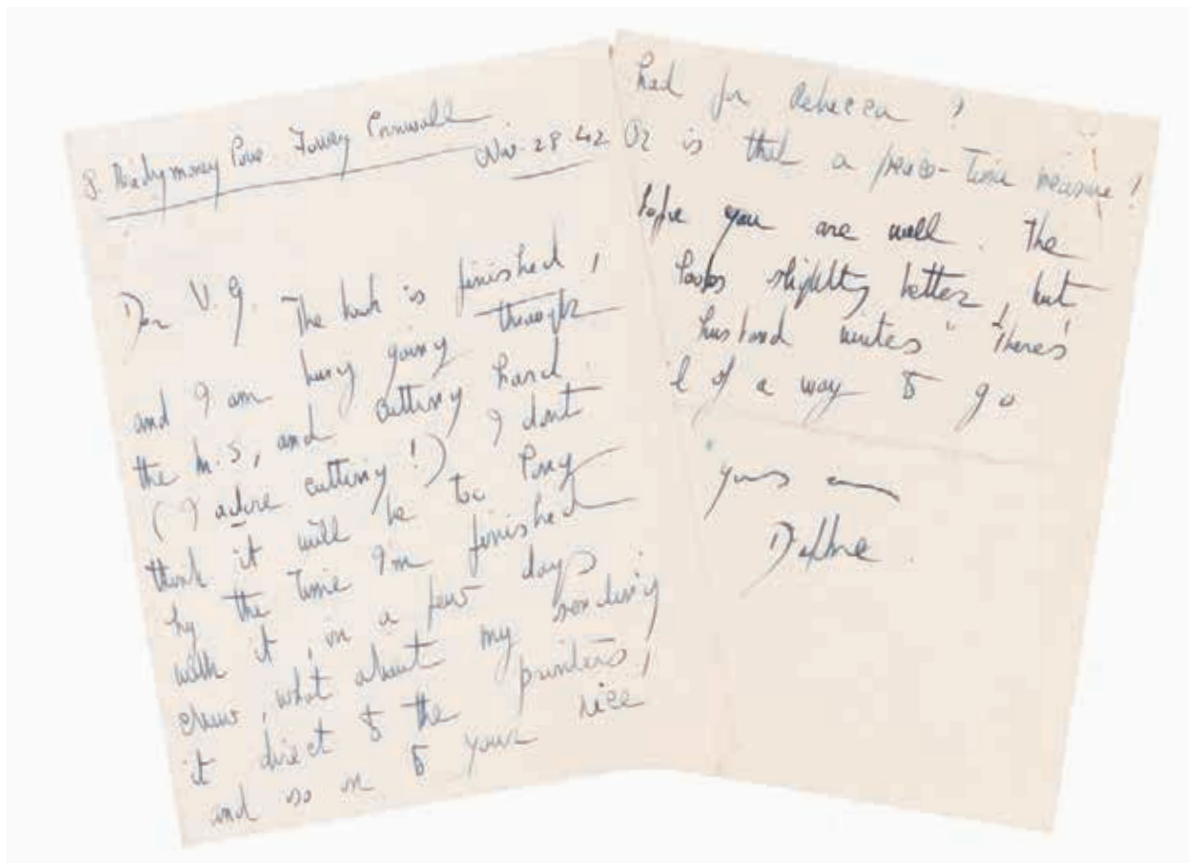 Readymoney Cove Fowey Cornwall
Nov. 28 42
Dear V.G. The book is finished,
and I am busy going through
the M.S, and cutting hard.
(I adore cutting!) I dont
think it will be too long
by the time I'm finished
with it, in a few days
, what about my sending
it direct to the printers,
and so on to your nice
had for Rebecca ?
Or is that a peace-time measure !
hope you are well. The
looks slightly better, but
husband writes "There's
l of a way to go
yours ever
Daphne.